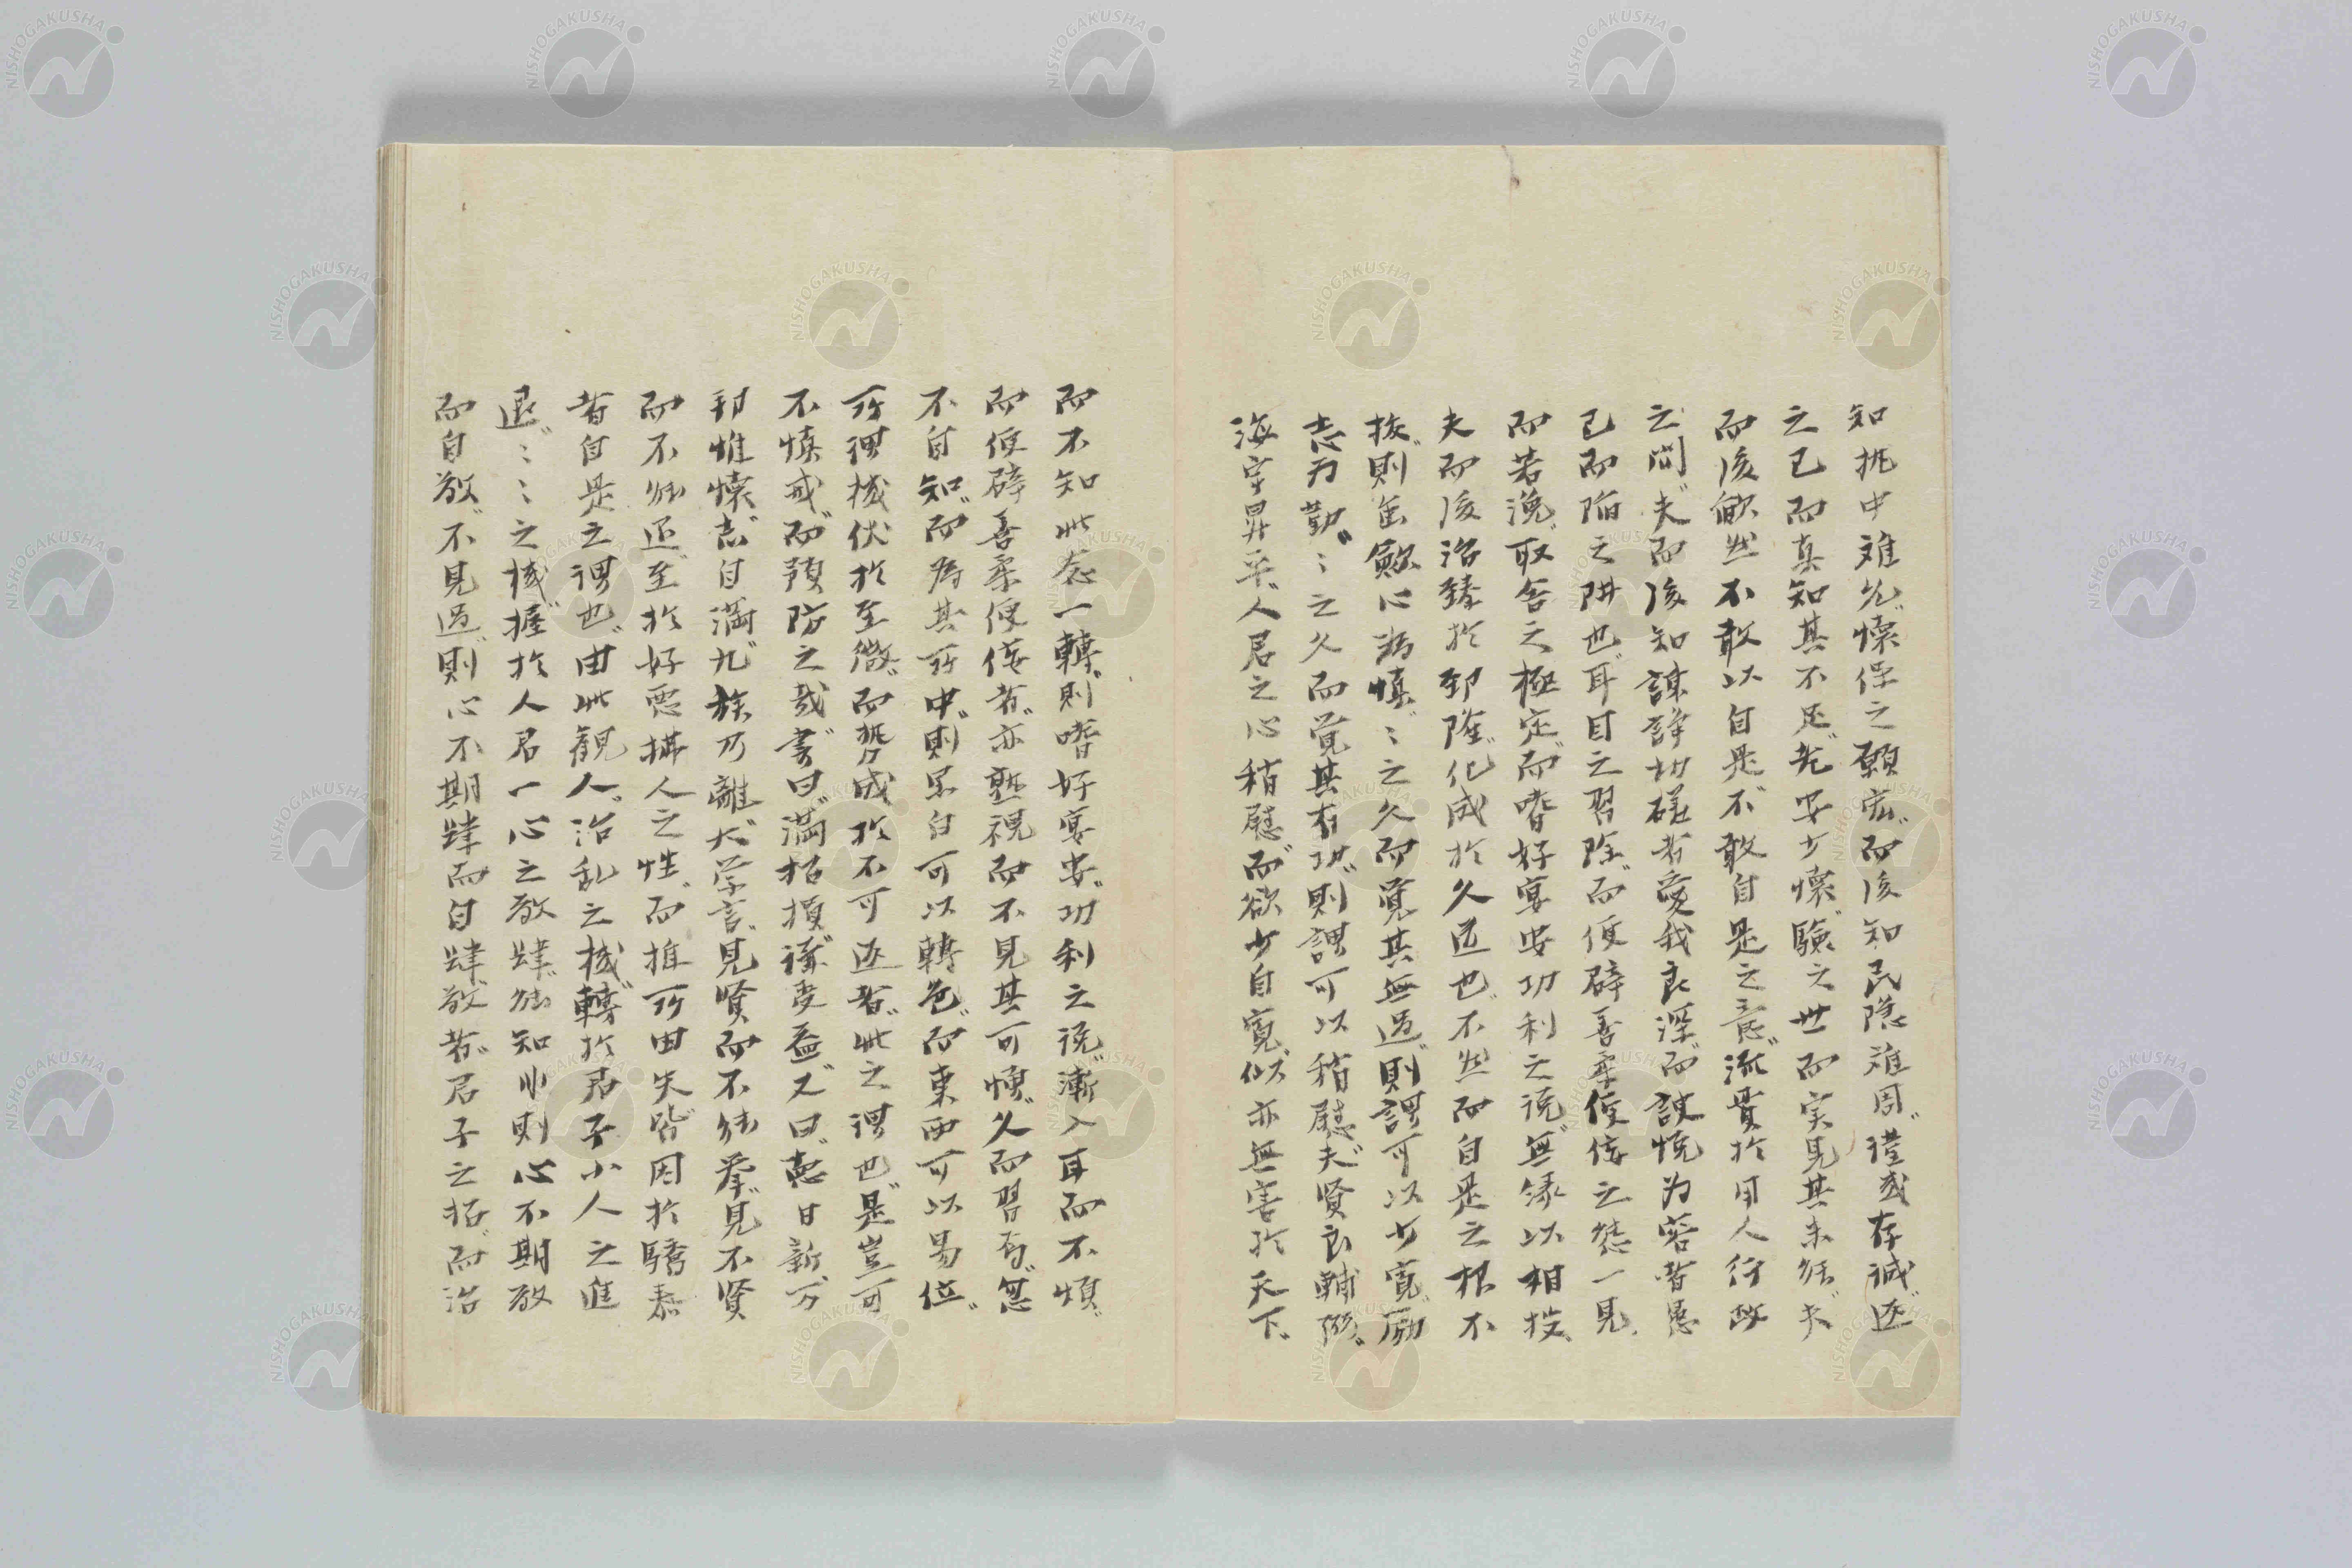 知執中難允懷保之願宏而後知民隱難周謹或存誠返
之己而真知其不足老安少懷驗之世而実見其未能夫
而後欿然不敢以自是不敢自是之意流貫於用人行政
之間夫而後知諫諍切磋者愛我良深而諛悦為容者愚
己而陥之阱也耳目之習除而便辟善柔便佞之態一見
而若浼取舍之極定而嗜好宴安功利之説無縁以相投
夫而後治臻於郅隆化成於久道也不然而自是之根不
抜則雖歛心為慎〻之久而覚其無過則謂可以少寛励
志為勤〻之久而覚其有功則謂可以稍慰夫賢良輔弼
海宇昇平人君之心稍慰而欲少自寛似亦無害於天下
而不知此念一轉則嗜好宴安功利之説漸入耳而不煩
而便辟善柔便佞者亦熟視而不見其可憎久而習焉忽
不自知而為其所中則黒白可以轉色而東西可以易位
所謂機伏於至微而勢成於不可返者此之謂也是豈可
不慎戒而預防之哉書曰満招損謙受益又曰徳日新万
邦惟懐志自満九族乃離大学言見賢而不能挙見不賢
而不能退至於好悪拂人之性而推所由失皆因於驕泰
者自是之謂也由此観人治乱之機轉於君子小人之進
退〻〻之機握於人君一心之敬肆能知非則心不期敬
而自敬不見過則心不期肆而自肆敬者君子之招而治